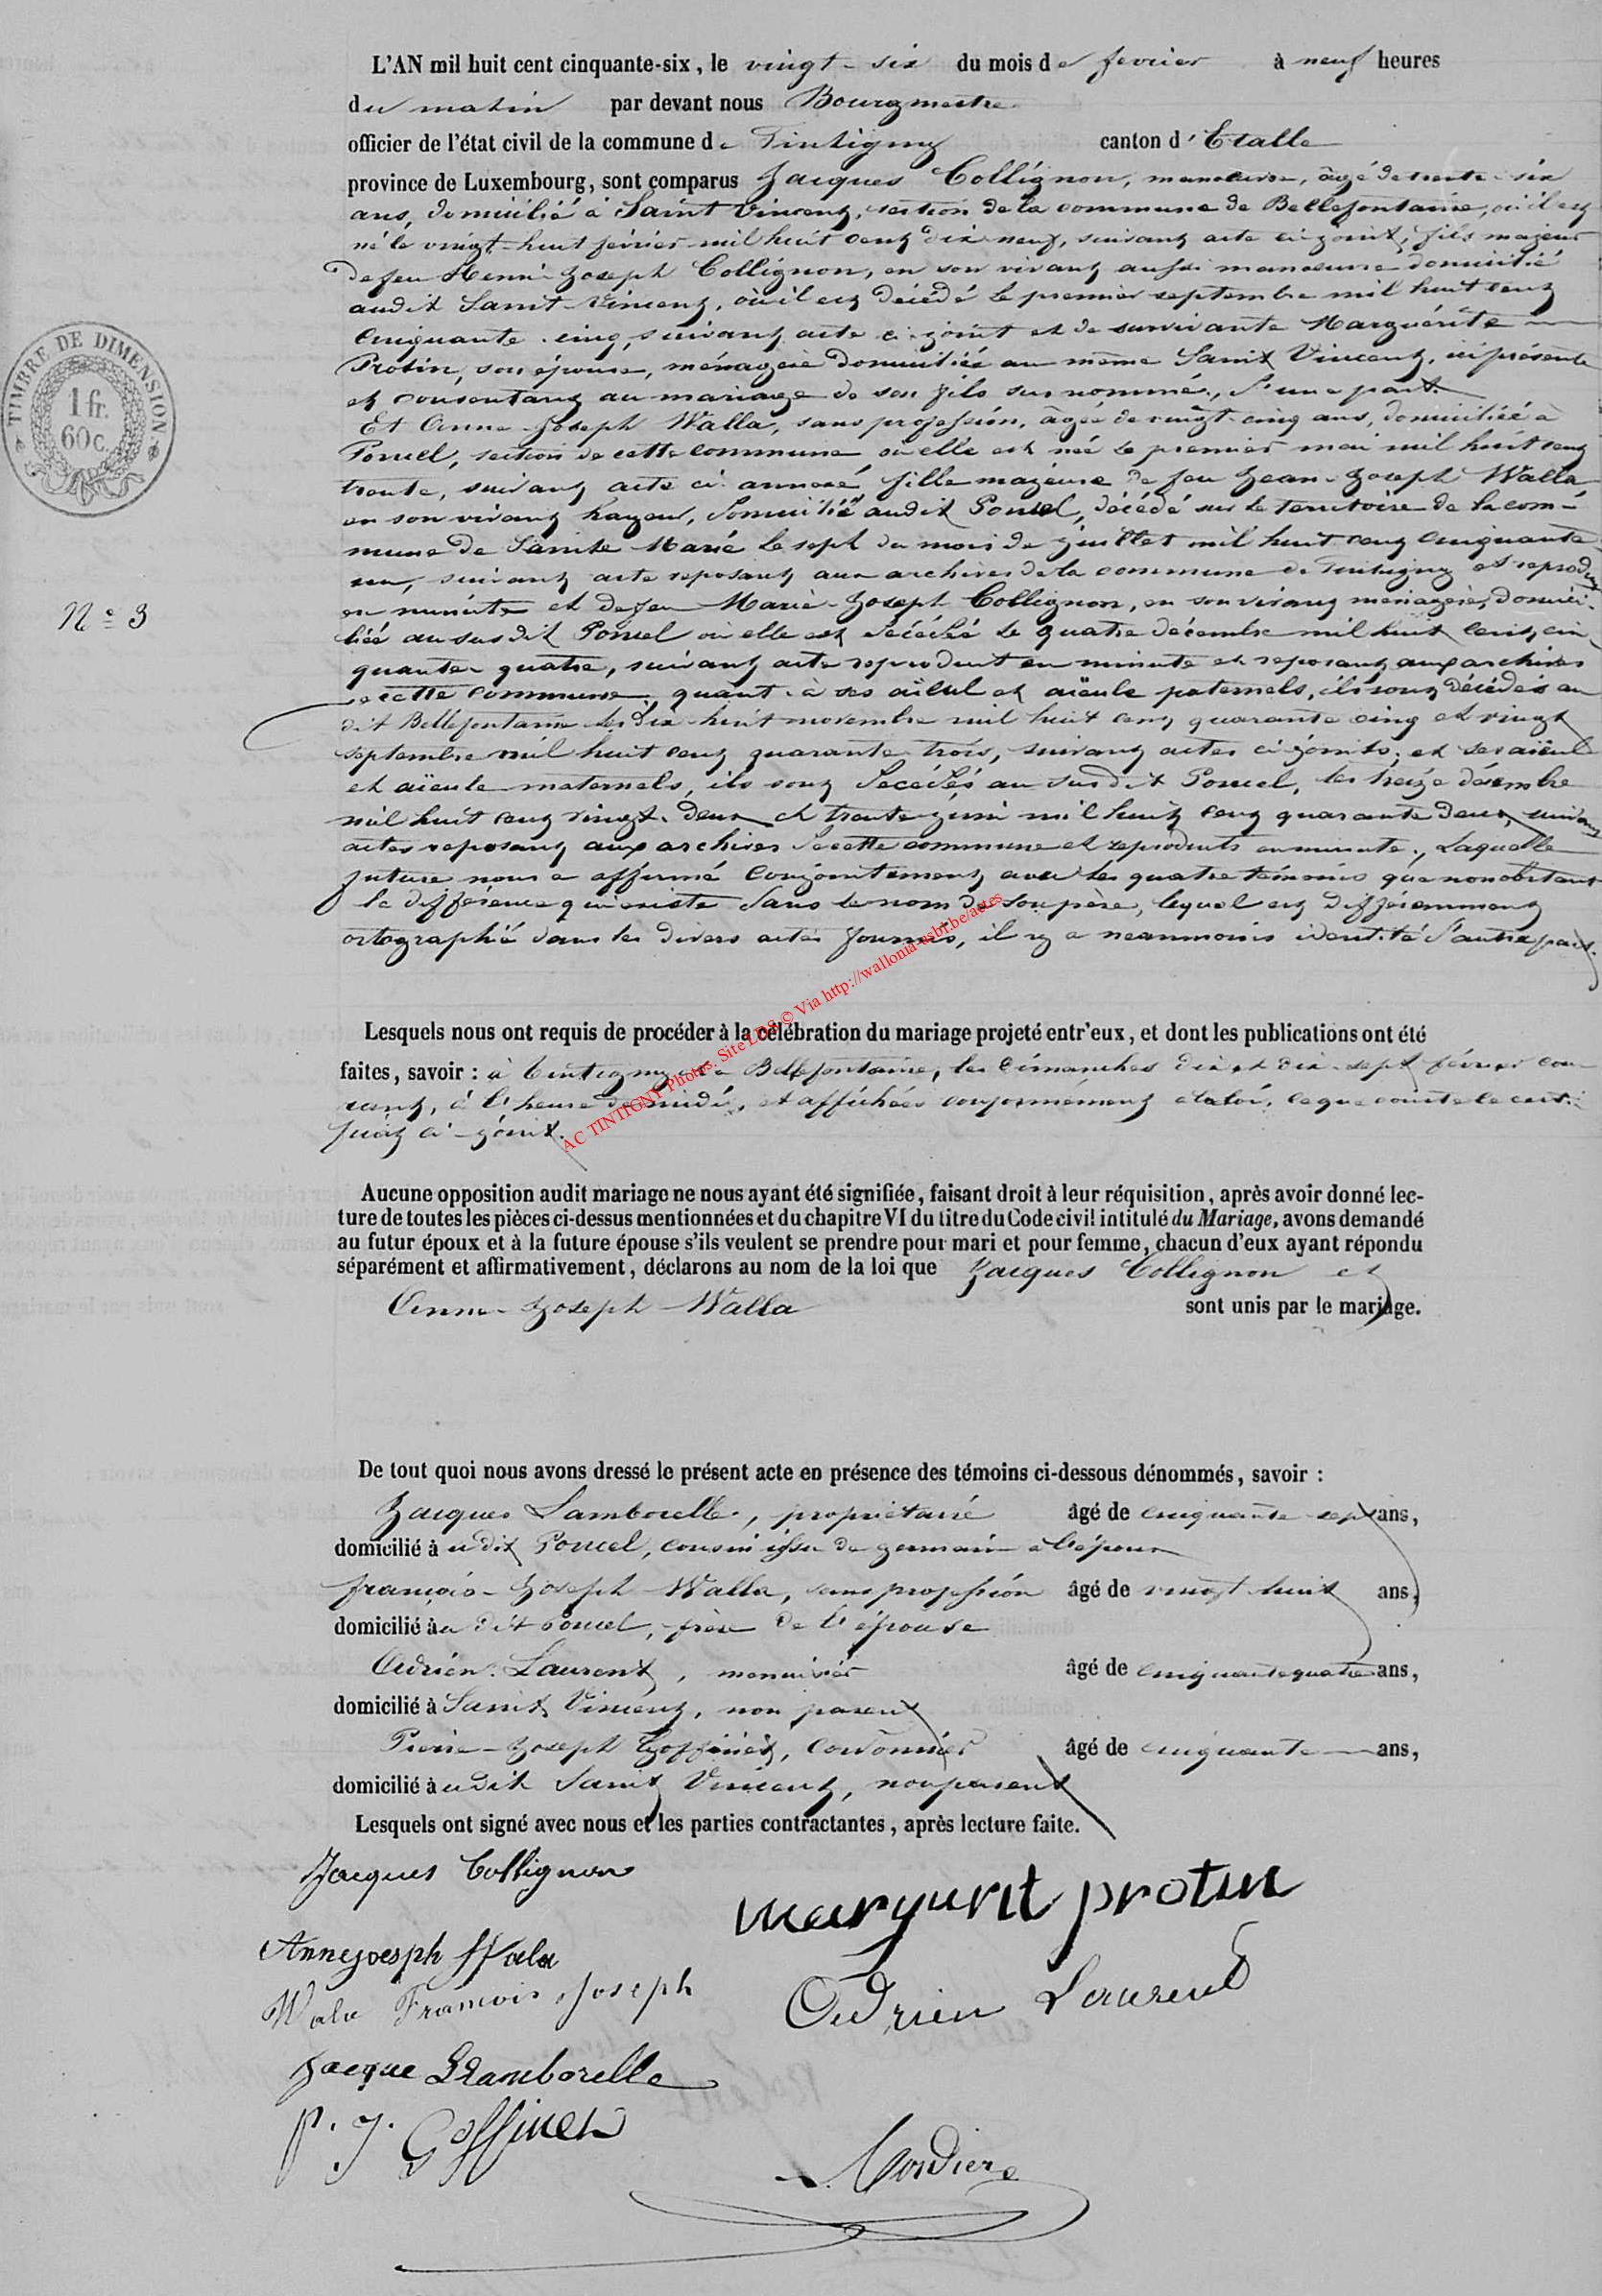 L'AN mil huit cent cinquante-six, le vingt-six du mois de fevrier à neuf heures
du matin par devant nous Bourgmestre
officier de l'état civil de la commune de Tintigny canton d'Etalle
province de Luxembourg, sont comparus Jacques Collignon, manœuvre, âgé de trente-six
ans, domicilié à Saint Vincent, section de la commune de Bellefontaine, où il est
né le vingt-huit février mil huit cent dix neuf, suivant acte ci-joint, fils majeur
de feu Henri-Joseph Collignon, en son vivant aussi manœuvre domicilié
audit Saint-Vincent, où il est décédé le premier septembre mil huit cent
cinquante-cinq, suivant acte ci-joint et de survivante Marguérite
Protin, son épouse, ménagère domiciliée au même Saint Vincent, ici présente
et consentant au mariage de son fils sus nommé, d'une part.
Et Anne-Joseph Walla, sans profession, âgée de vingt-cinq ans, domiciliée à
Poncel, section de cette commune où elle est née le premier mai mil huit cent
trente, suivant acte ci-annexé fille majeure de feu Jean-Joseph Walla
en son vivant domicilié audit Poncel, décédé sur le territoire de la com-
mune de Sainte Marie le sept du mois de juillet mil huit cent cinquante
un, suivant acte reposant aux archives de la commune de Tintigny et reproduit
en minute et de feu Marie-Joseph Collignon, en son vivant ménagère, domici-
liée au susdit Poncel où elle est décédée le quatre décembre mil huit cent cin-
quante-quatre, suivant acte reproduit en minute et reposant aux archives
de cette commune, quant à ses aïeul et aïeule paternels, ils sont décédés au
dit Bellefontaine les dix-huit novembre mil huit cent quarante cinq et vingt
septembre mil huit cent quarante-trois, suivant actes ci-joints, et ses aïeul
et aïeule maternels, ils sont décédés au susdit Poncel, les treize décembre
mil huit cent vingt-deux et trente juin mil huit cent quarante deux, suivant
actes reposant aux archives de cette commune et reproduits en minute, Laquelle
future nous a affirmé conjointement avec les quatre témoins que nonobstant
la différence qui existe dans le nom de son père, lequel est différemment
ortographié dans les divers actes fournis, il y a neanmoins identité d'autre part.
N° 3
TIMBRE DE DIMENSION
1 fr.
60 c.
Lesquels nous ont requis de procéder à la célébration du mariage projeté entr'eux, et dont les publications ont été
faites, savoir : à Tintigny et à Bellefontaine, les dimanches dix et dix-sept février cou-
rant, à l'heure de midi, et affichées conformément à la loi, ce que constate le certi-
ficat ci-joint.
AC TINTIGNY Photos. Site LDS © Via http://wallonia-asbl.be/actes
Aucune opposition audit mariage ne nous ayant été signifiée, faisant droit à leur réquisition, après avoir donné lec-
ture de toutes les pièces ci-dessus mentionnées et du chapitre VI du titre du Code civil intitulé du Mariage, avons demandé
au futur époux et à la future épouse s'ils veulent se prendre pour mari et pour femme, chacun d'eux ayant répondu
séparément et affirmativement, déclarons au nom de la loi que Jacques Collignon et
Anne-Joseph Walla sont unis par le mariage.
De tout quoi nous avons dressé le présent acte en présence des témoins ci-dessous dénommés, savoir :
Jacques Lamborelle, propriétaire âgé de cinquante-sept ans,
domicilié à udit Poncel, cousin issu de germain à l'époux
françois-Joseph Walla, sans profession âgé de vingt-huit ans,
domicilié à u dit Poncel, frère de l'épouse
Adrien Laurent, menuisier âgé de cinquante quatre ans,
domicilié à Saint Vincent, non parent
Pierre-Joseph Goffinet, cordonnier âgé de cinquante ans,
domicilié à udit Saint Vincent, non parent
Lesquels ont signé avec nous et les parties contractantes, après lecture faite.
Jacques Collignon
margurit protin
Annejoesph Wala
Adrien Laurent
Wala Francois Joseph
Jacque Lamborelle
P. J. Goffinet